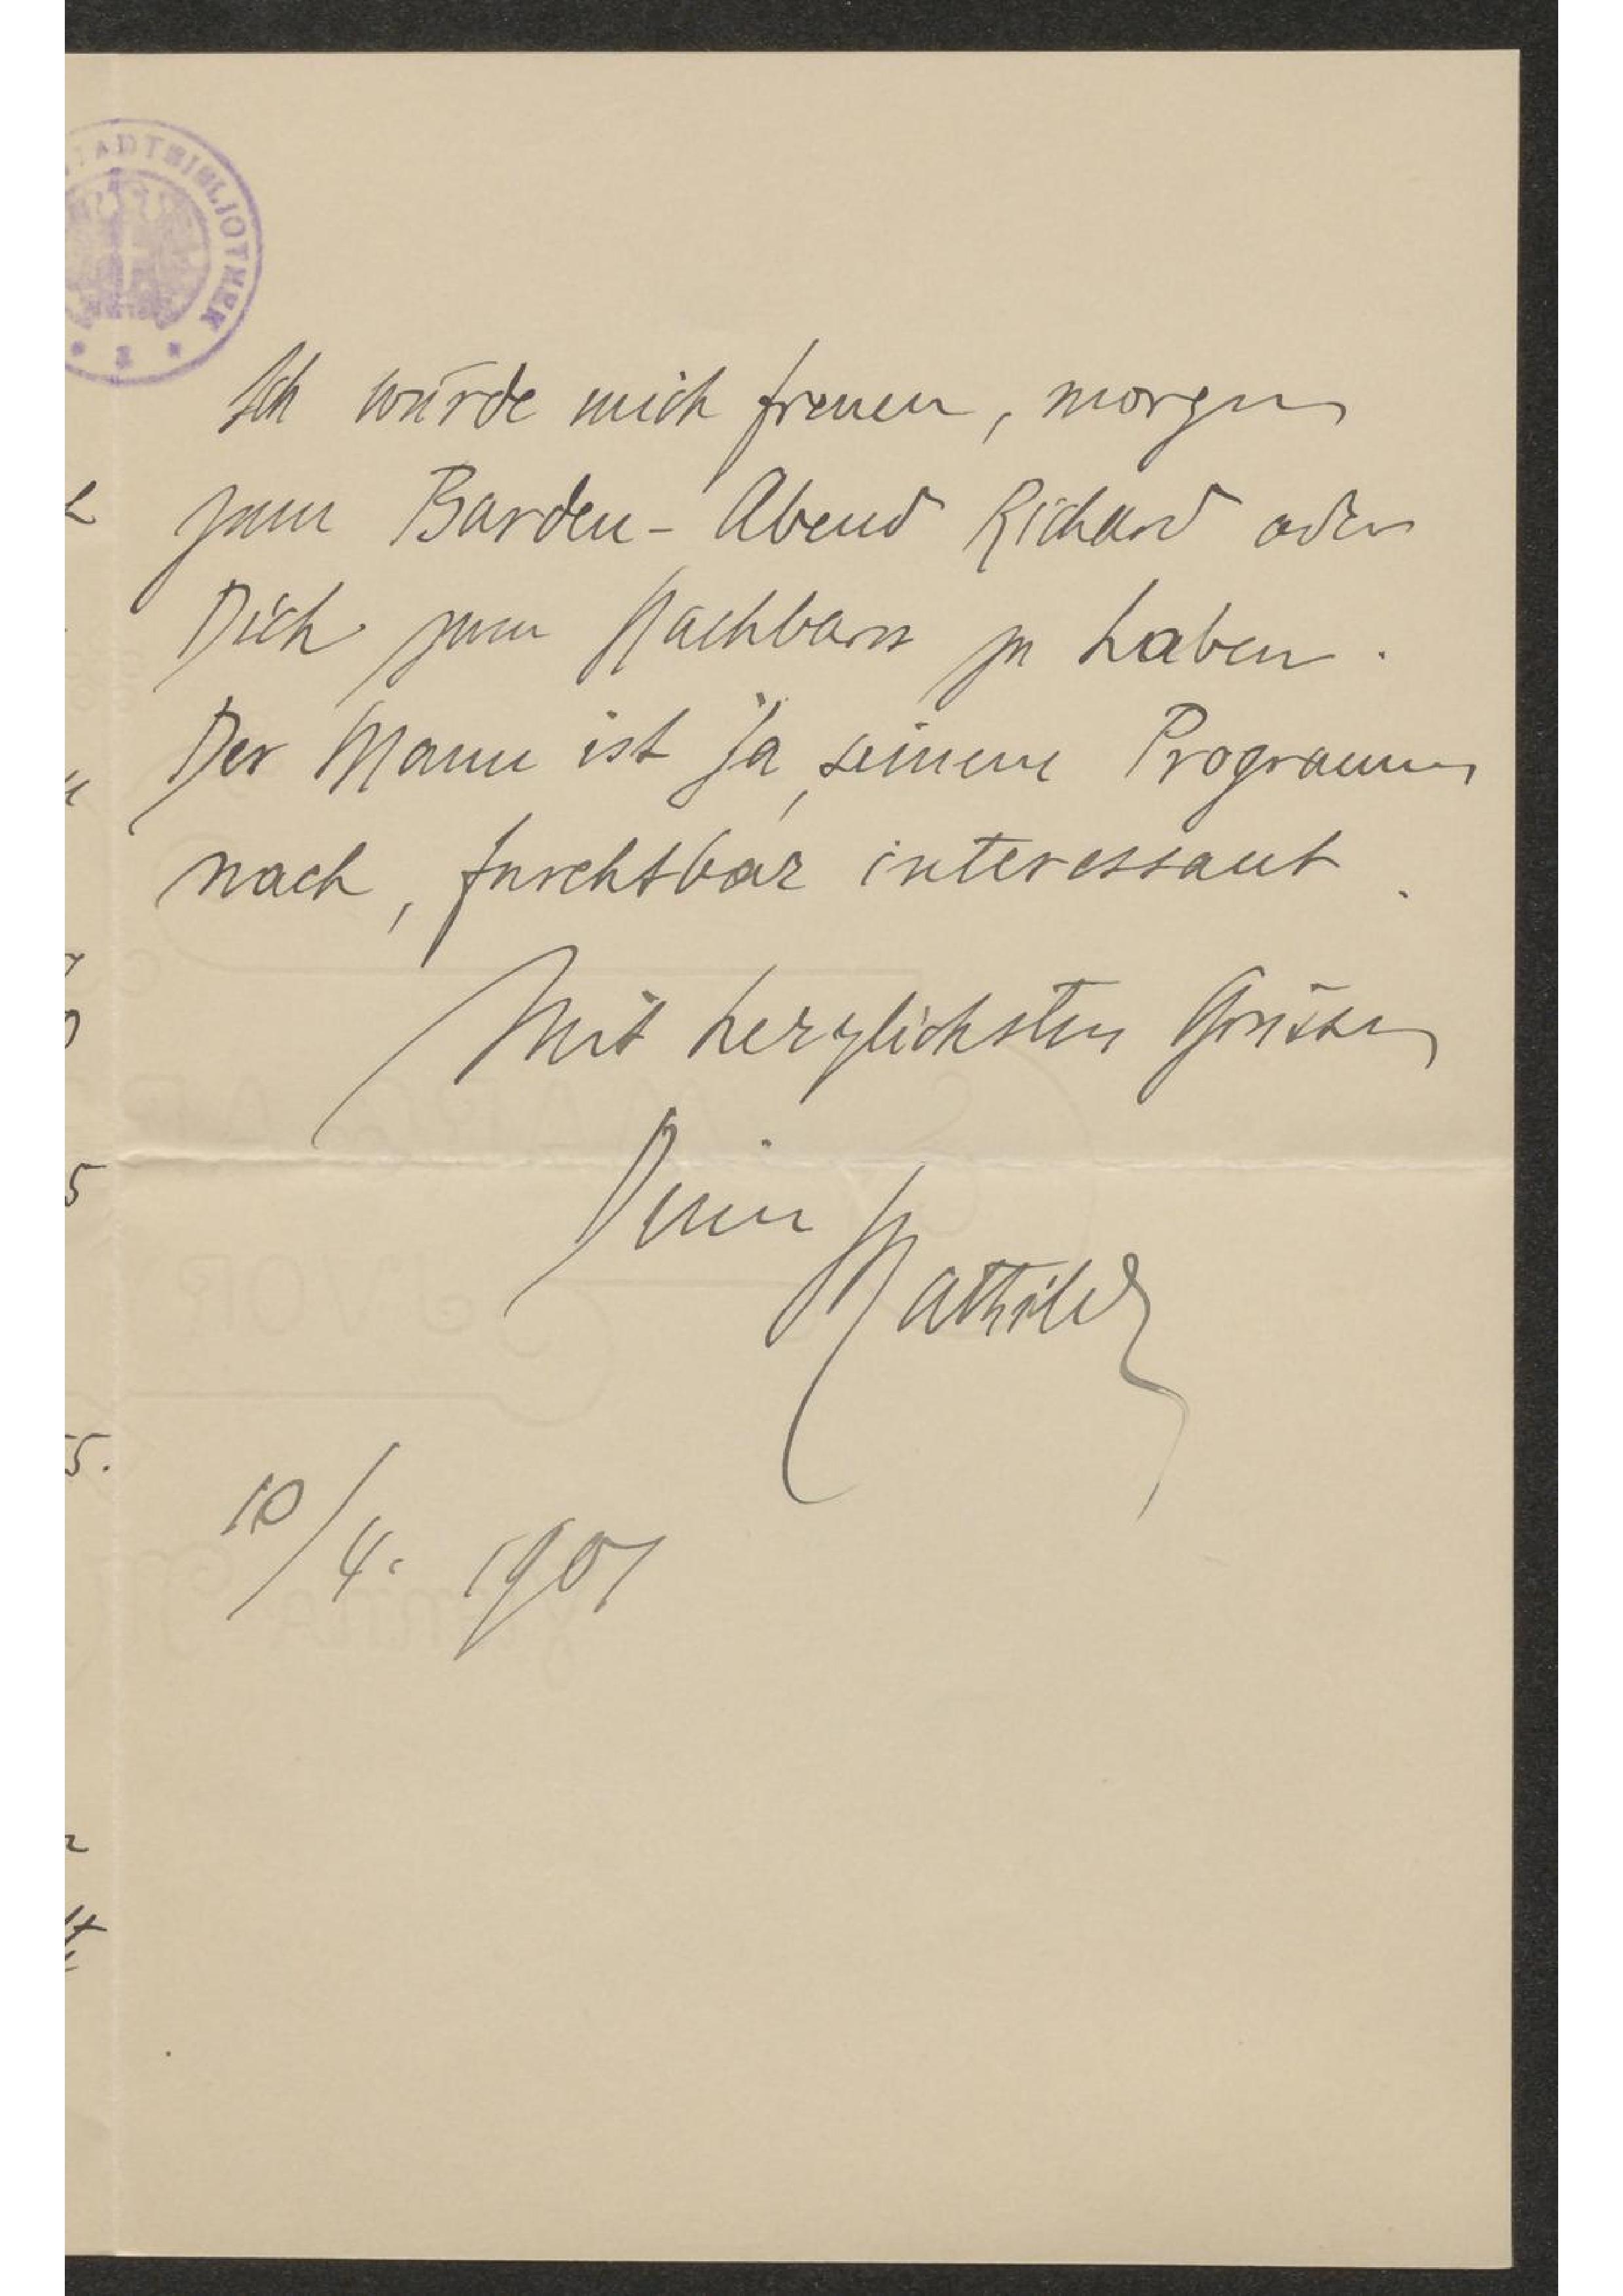 STADTBIBLIOTHEK
Ich würde mich freuen, morgen
zum Barden-Abend Richard oder
Dich zum Nachbarn zu haben.
Der Mann ist ja, seinem Programm
nach, furchtbar interessant.
Mit herzlichsten Grüssen
Dein
Mathilde
10/4. 1901